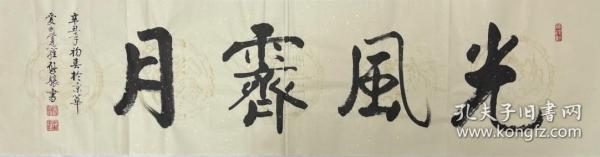 光風霽月
辛丑年初春於京華
孔夫子旧书网
www.kongfz.com